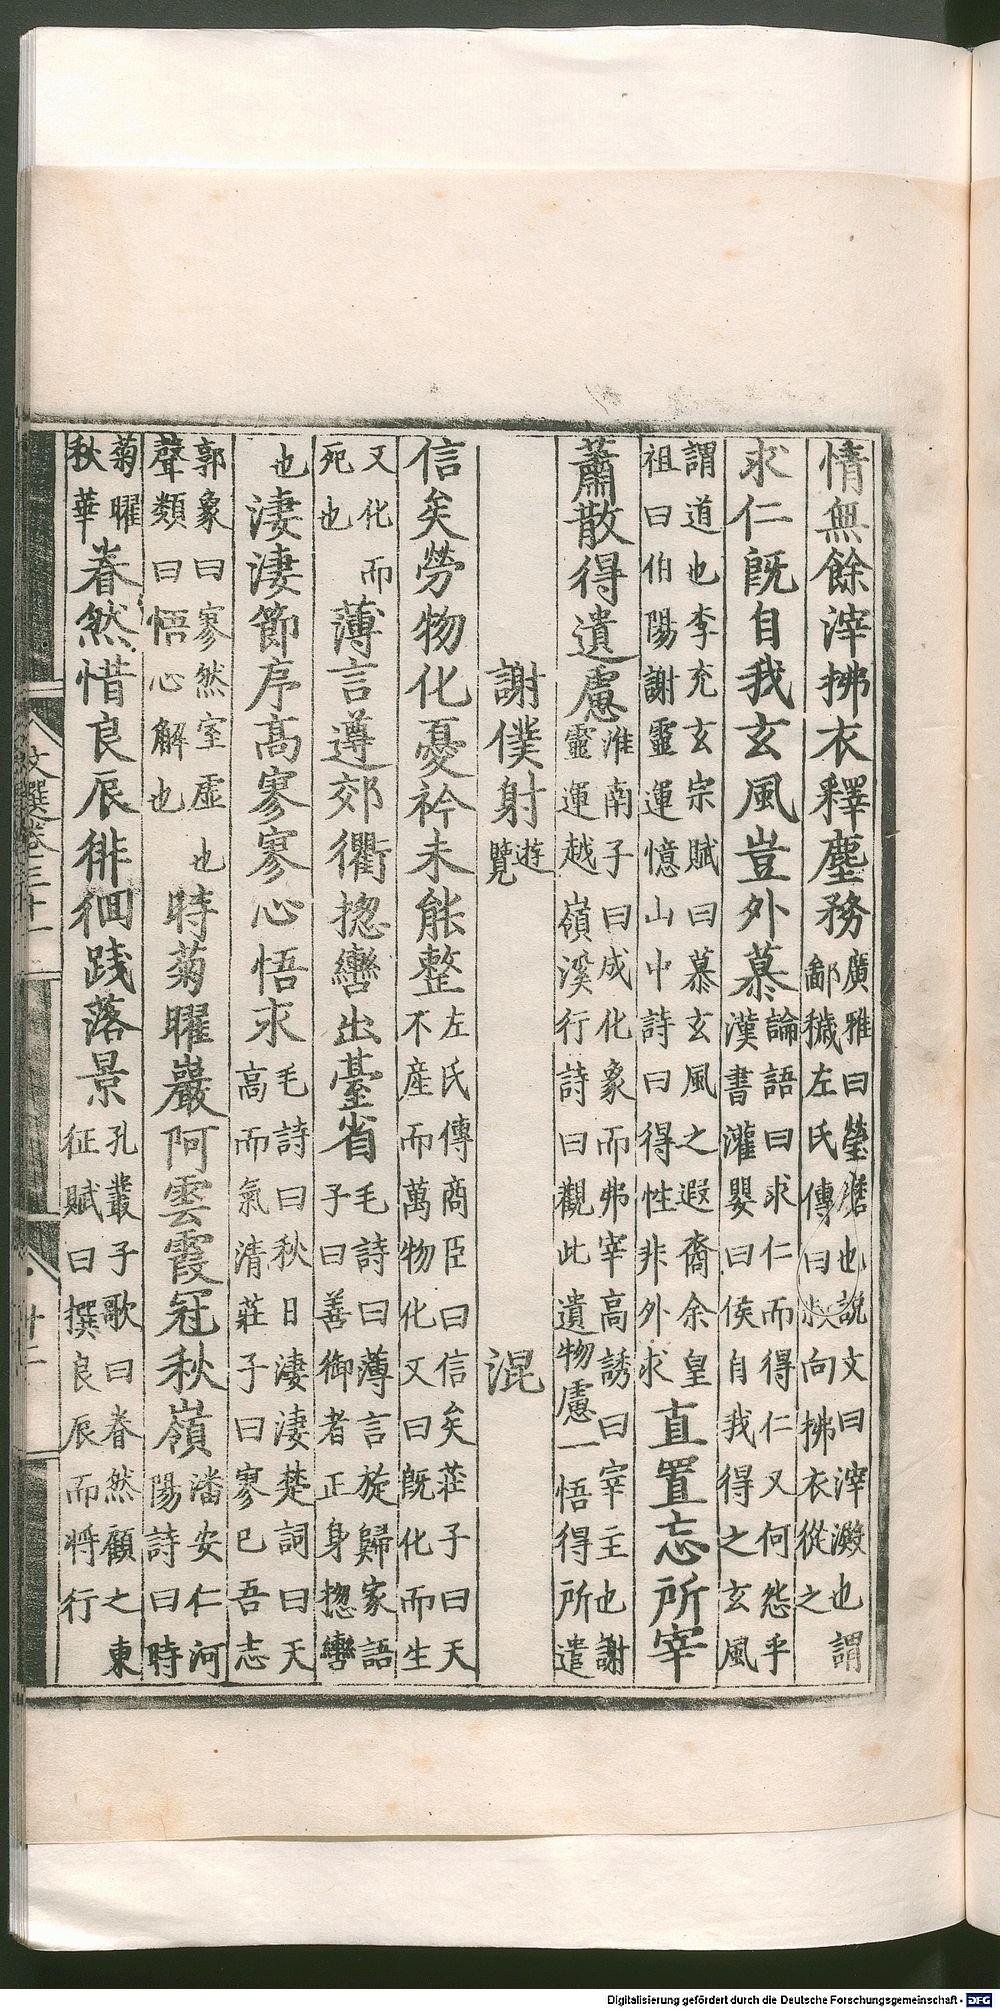 情無餘滓拂衣釋塵務廣雅曰瑩磨也說文曰滓澱也謂
鄙穢左氏傳曰叔向拂衣從之
求仁旣自我玄風豈外慕論語曰求仁而得仁又何怨乎
漢書灌嬰曰侯自我得之玄風
謂道也李充玄宗賦曰慕玄風之遐裔余皇
祖曰伯陽謝靈運憶山中詩曰得性非外求直置忘所宰
蕭散得遺慮淮南子曰成化象而弗宰高誘曰宰主也謝
靈運越嶺溪行詩曰觀此遺物慮一悟得所遣
謝僕射遊覽 混
信矣勞物化憂衿未能整左氏傳商臣曰信矣莊子曰天
不産而萬物化文曰旣化而生
又化而
死也薄言遵郊衢揔轡出臺省毛詩曰薄言旋歸家語
子曰善御者正身揔轡
也淒淒節序高寥寥心悟求毛詩曰秋日淒淒楚詞曰天
高而氣清莊子曰寥已吾志
郭象曰寥然室虛也
聲類曰悟心解也時菊曜巖阿雲霞冠秋嶺潘安仁河
陽詩曰時
菊曜
秋華眷然惜良辰徘徊踐落景孔叢子歌曰眷然顧之東
征賦曰撰良辰而將行
文選卷三十一
廿二
Digitalisierung gefördert durch die Deutsche Forschungsgemeinschaft - DFG